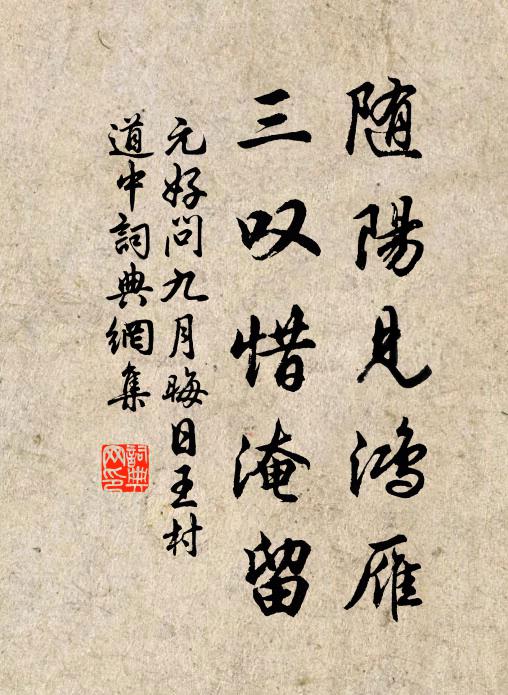 随陽見鴻雁
三叹惜淹留
元好問九月晦日王村
道中詞典網集
詞典网印